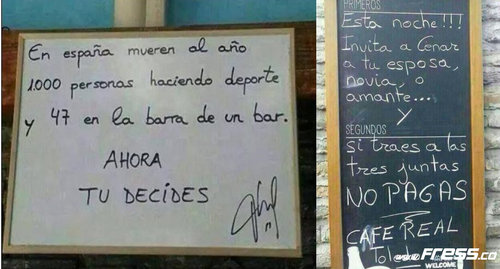 En españa mueren al año
1.000 personas haciendo deporte
y 47 en la barra de un bar.
AHORA
TU DECIDES
PRIMEROS
Esta noche!!!
Invita a Cenar
a tu esposa,
novia, o
amante...
y
SEGUNDOS
si traes a las
tres juntas
NO PAGAS
CAFE REAL
Toledo
WELCOME
FRESS.co